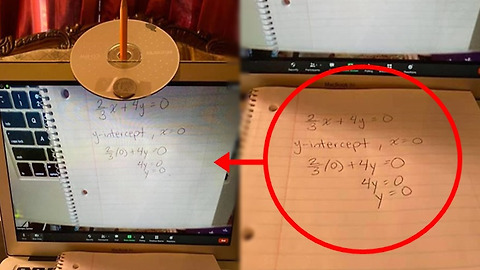 2/3 x + 4y = 0
y-intercept, x = 0
2/3 (0) + 4y = 0
4y = 0
y = 0
2/3 x + 4y = 0
y-intercept, x = 0
2/3 (0) + 4y = 0
4y = 0
y = 0